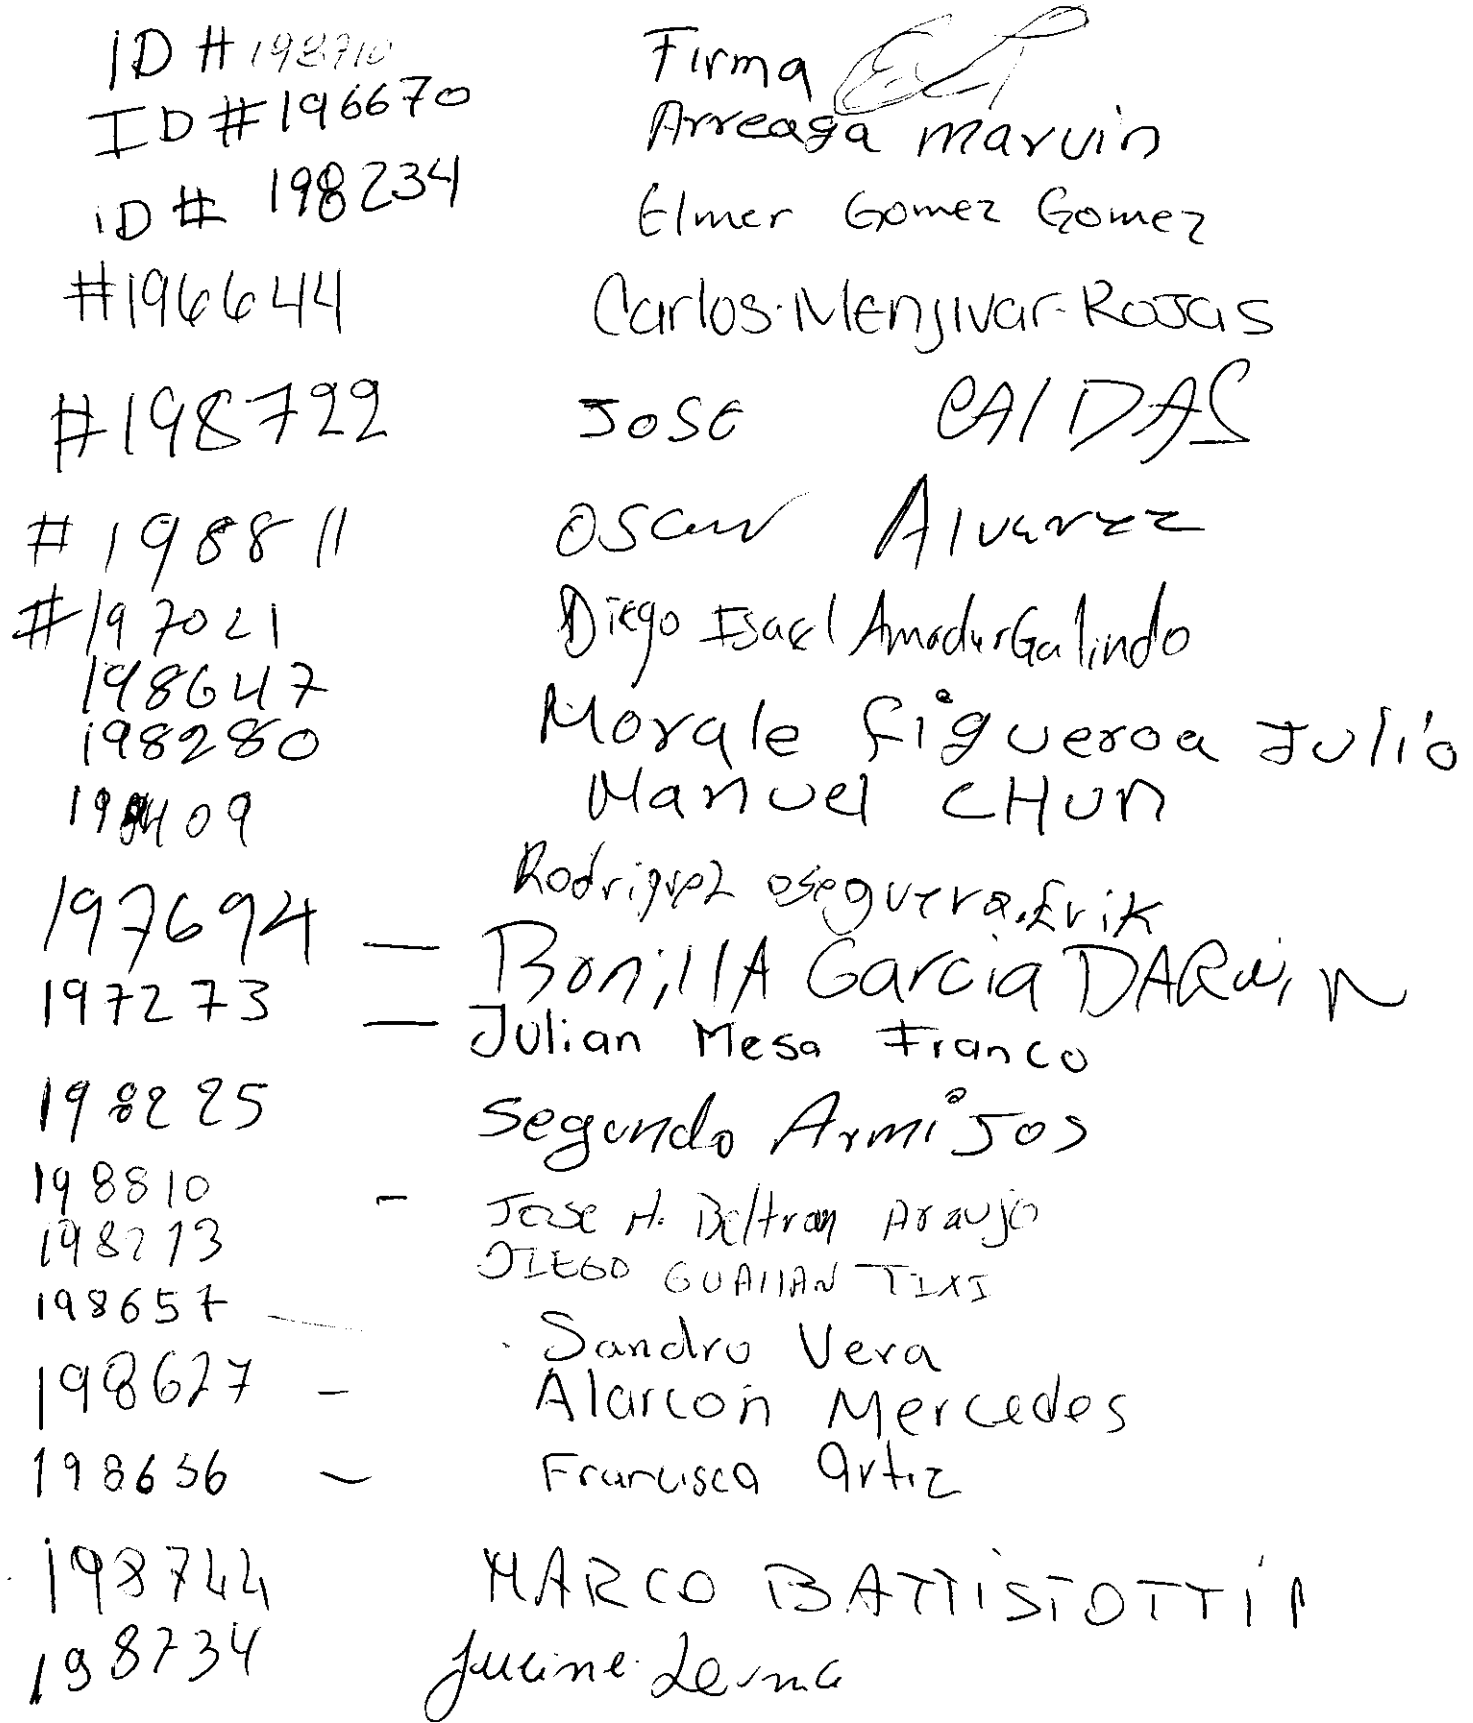 ID # 198710 Firma
ID # 196670 Arreaga marvin
ID # 198234 Elmer Gomez Gomez
#196644 Carlos. Menjivar-Rojas
#198722 JOSE CAlDAS
#198811 oscar Alvarez
#197021 Diego Isael Amador Galindo
198647 Morale figueroa Julio
198280 Manuel CHUn
409 Rodriguez oseguera. Erik
197694 — BonillA Garcia DARwin
197273 — Julian Mesa Franco
198225 segundo Armijos
198810 - Jose H. Beltran Araujo
198273 DIEGO GUALLAN TIXI
198657 Sandro Vera
198627 - Alarcon Mercedes
198656 - Francisca Ortiz
198744 MARCO BATTISTOTTI
198734